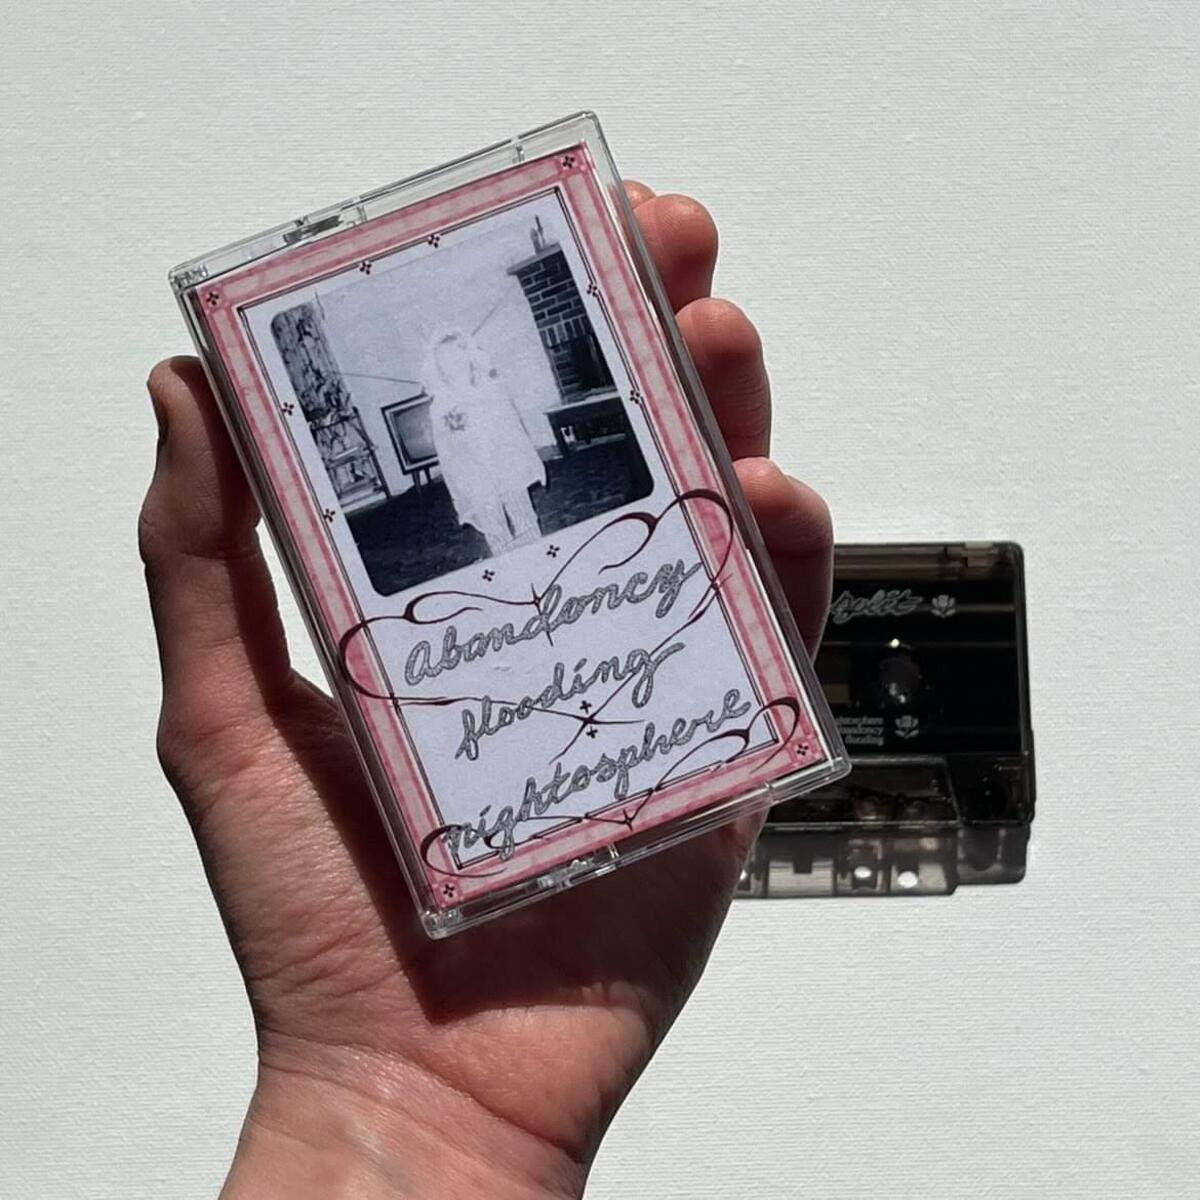 Abandoncy
flooding
nightosphere
split
nightosphere
abandoncy
flooding